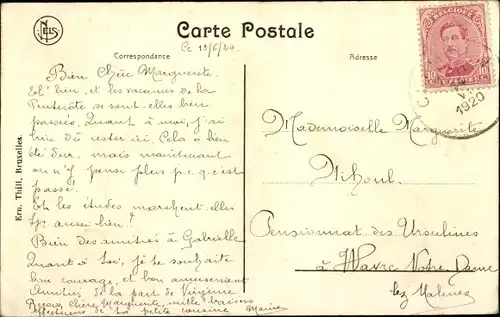 NELS
Carte Postale
Ce 13/6/20.
Correspondance
Adresse
BELGIQUE
1920
Ern. Thill, Bruxelles.
Bien Chère Marguerite.
Eh! bien, et les vacances de la
Pentecôte se sont elles bien
passées. Quant à moi, j'ai
bien dû rester ici. Cela a bien
été dur, mais maintenant
on n'y pense plus p.c.q. c'est
passé.
Et les études marchent-elles
aussi bien?
Bien des amitiés à Gabrielle
Quant à toi, je te souhaite
bon courage, et bon amusement
Amitiés de la part de Virginie
chère Marguerite, mille baisers
affectueux de ta petite cousine Maria
Mademoiselle Marguerite
Nihoul.
Pensionnat des Ursulines
à Wavre Notre-Dame
lez Malines